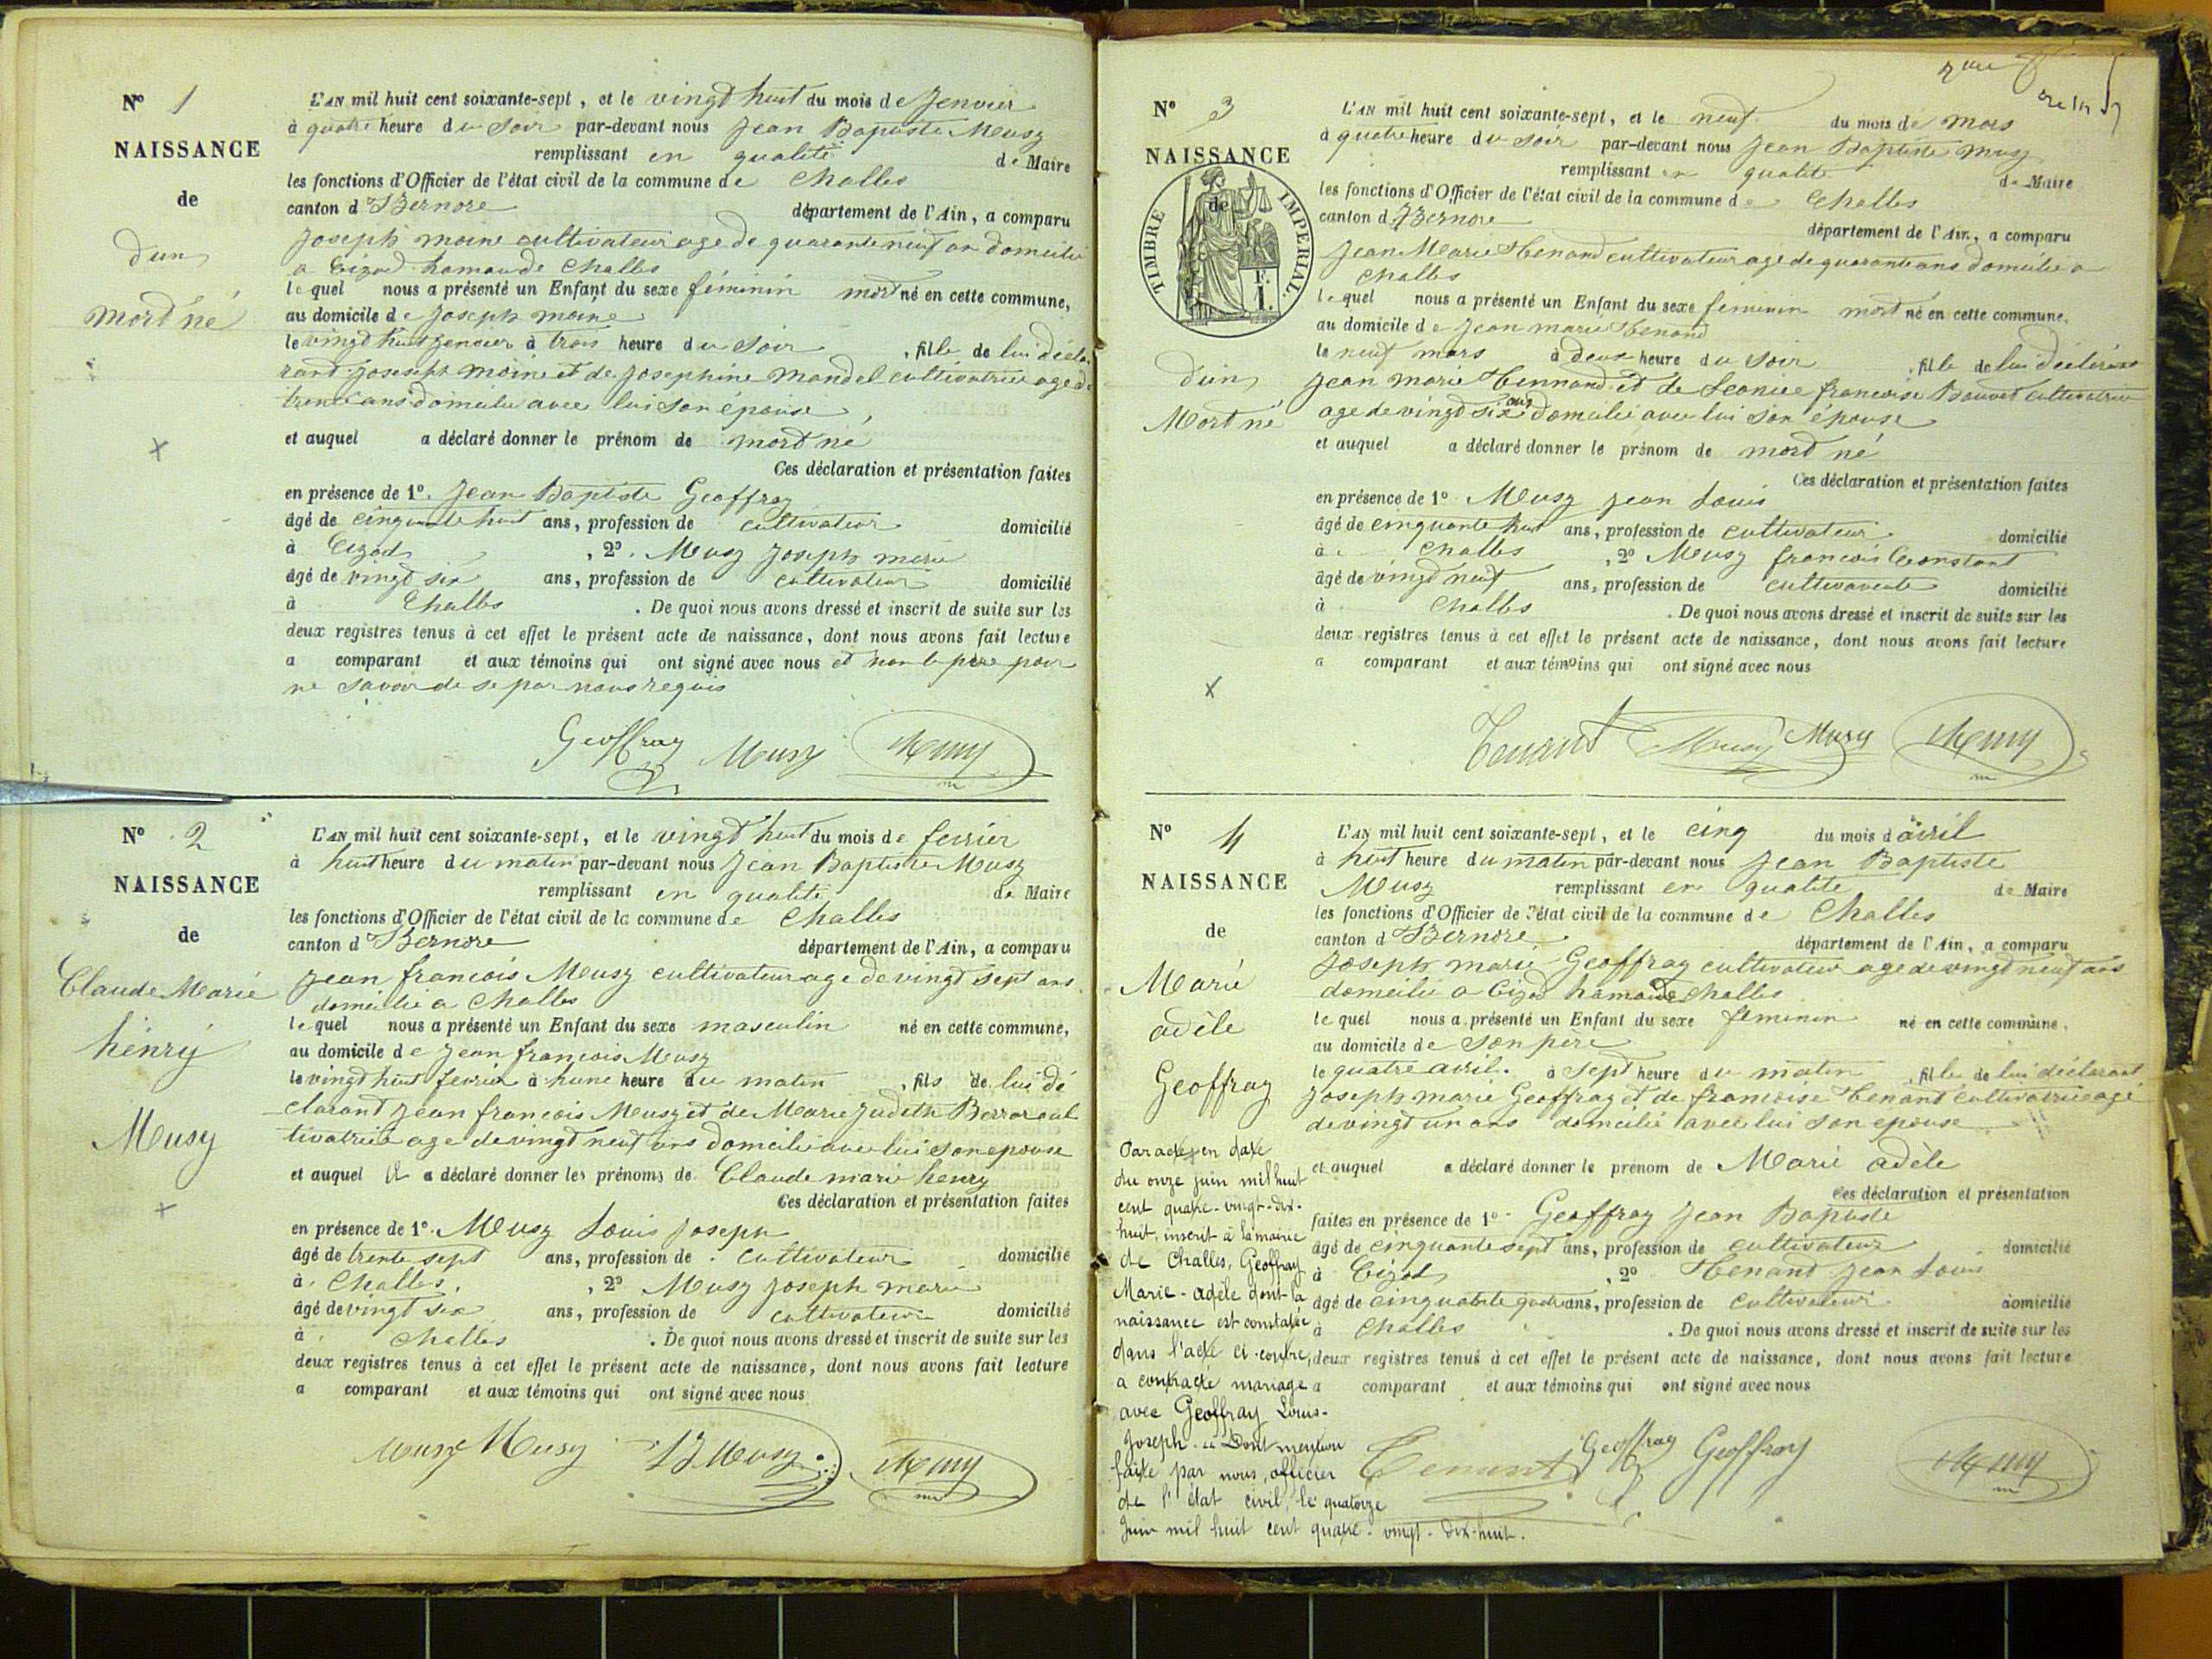 N° 1
NAISSANCE
de
d'un
mort né
L'AN mil huit cent soixante-sept, et le vingt huit du mois de Jenvier
à quatre heure du soir par-devant nous Jean Baptiste Musy
remplissant en qualité de Maire
les fonctions d'Officier de l'état civil de la commune de Challes
canton d Bernore département de l'Ain, a comparu
Joseph moine cultivateur age de quarante neuf an domicilié
a Cizod hamau de Challes
lequel nous a présenté un Enfant du sexe féminin mort né en cette commune,
au domicile de Joseph moine
le vingt huit Jenvier à trois heure du soir, fille de lui décla
rant Joseph moine et de Josephine Mandel cultivatrice age de
trente ans domicilié avec lui son épouse,
et auquel a déclaré donner le prénom de mort né
Ces déclaration et présentation faites
en présence de 1°. Jean Baptiste Geoffray
âgé de cinquante huit ans, profession de cultivateur domicilié
à Cizod, 2°. Musy Joseph marie
âgé de vingt six ans, profession de cultivateur domicilié
à Challes. De quoi nous avons dressé et inscrit de suite sur les
deux registres tenus à cet effet le présent acte de naissance, dont nous avons fait lecture
a comparant et aux témoins qui ont signé avec nous et non le père pour
ne savoir de se par nous requis
Geoffray Musy Musy
N° 2
NAISSANCE
de
Claude Marie
hénry
Musy
L'AN mil huit cent soixante-sept, et le vingt huit du mois de fevrier
à huit heure du matin par-devant nous Jean Baptiste Musy
remplissant en qualité de Maire
les fonctions d'Officier de l'état civil de la commune de Challes
canton d Bernore département de l'Ain, a comparu
Jean francois Musy cultivateur age de vingt sept ans
domicilié a Challes
lequel nous a présenté un Enfant du sexe masculin né en cette commune,
au domicile de Jean francois Musy
le vingt huit fevrier à hune heure du matin, fils de lui dé
clarant Jean francois Musy et de Marie Judith cul
tivatrice age de vingt neuf ans domicilié avec lui son epouse
et auquel il a déclaré donner les prénoms de Claude marie henry
Ces déclaration et présentation faites
en présence de 1°. Musy Louis Joseph
âgé de trente sept ans, profession de cultivateur domicilié
à Challes, 2° Musy Joseph marie
âgé de vingt six ans, profession de cultivateur domicilié
à Challes. De quoi nous avons dressé et inscrit de suite sur les
deux registres tenus à cet effet le présent acte de naissance, dont nous avons fait lecture
a comparant et aux témoins qui ont signé avec nous
Musy Musy JB Musy Musy
N° 3
NAISSANCE
de
TIMBRE IMPERIAL.
F.
1.
d'un
Mort né
L'AN mil huit cent soixante-sept, et le neuf du mois de mars
à quatre heure du soir par-devant nous Jean Baptiste Musy
remplissant en qualité de Maire
les fonctions d'Officier de l'état civil de la commune de Challes
canton d Bernore département de l'Ain, a comparu
Jean Marie Tenand cultivateur age de quarante ans domicilié a
Challes
lequel nous a présenté un Enfant du sexe feminin mort né en cette commune,
au domicile de Jean marie Tenand
le neuf mars à deux heure du soir, fille de lui déclarant
Jean marie Tennand et de Leonice francoise Bouvet cultivatrice
age de vingt six ans domicilié avec lui son épouse
et auquel a déclaré donner le prénom de mort né
Ces déclaration et présentation faites
en présence de 1° Musy Jean Louis
âgé de cinquante huit ans, profession de cultivateur domicilié
à Challes, 2° Musy francois Constant
âgé de vingt neuf ans, profession de domicilié
à Challes. De quoi nous avons dressé et inscrit de suite sur les
deux registres tenus à cet effet le présent acte de naissance, dont nous avons fait lecture
a comparant et aux témoins qui ont signé avec nous
Tenant Musy Musy Musy
N° 4
NAISSANCE
de
Marie
adèle
Geoffray
L'AN mil huit cent soixante-sept, et le cinq du mois d avril
à huit heure du matin par-devant nous Jean Baptiste
Musy remplissant en qualité de Maire
les fonctions d'Officier de l'état civil de la commune de Challes
canton d Bernore département de l'Ain, a comparu
Joseph marie Geoffray cultivateur age de vingt neuf ans
domicilié a Cizod hamau de Challes
lequel nous a présenté un Enfant du sexe féminin né en cette commune,
au domicile de son père
le quatre avril à sept heure du matin, fille de lui déclarant
Joseph marie Geoffray et de francoise Tenant cultivatrice agé
de vingt un ans domicilié avec lui son epouse
et auquel a déclaré donner le prénom de Marie adèle
Ces déclaration et présentation
faites en présence de 1° Geoffray Jean Baptiste
âgé de cinquante sept ans, profession de cultivateur domicilié
à Cizod, 2° Tenant Jean Louis
âgé de cinquante quatre ans, profession de cultivateur domicilié
à Challes. De quoi nous avons dressé et inscrit de suite sur les
deux registres tenus à cet effet le présent acte de naissance, dont nous avons fait lecture
a comparant et aux témoins qui ont signé avec nous
Tenant Geoffray Geoffray Musy
Par acte en date
du onze juin mil huit
cent quatre-vingt-dix-
huit, inscrit à la mairie
de Challes, Geoffray
Marie-adèle dont la
naissance est constatée
dans l'acte ci-contre,
a contracté mariage
avec Geoffray Louis-
Joseph. Dont mention
faite par nous, officier
de l'état civil, le quatorze
Juin mil huit cent quatre-vingt-dix-huit.